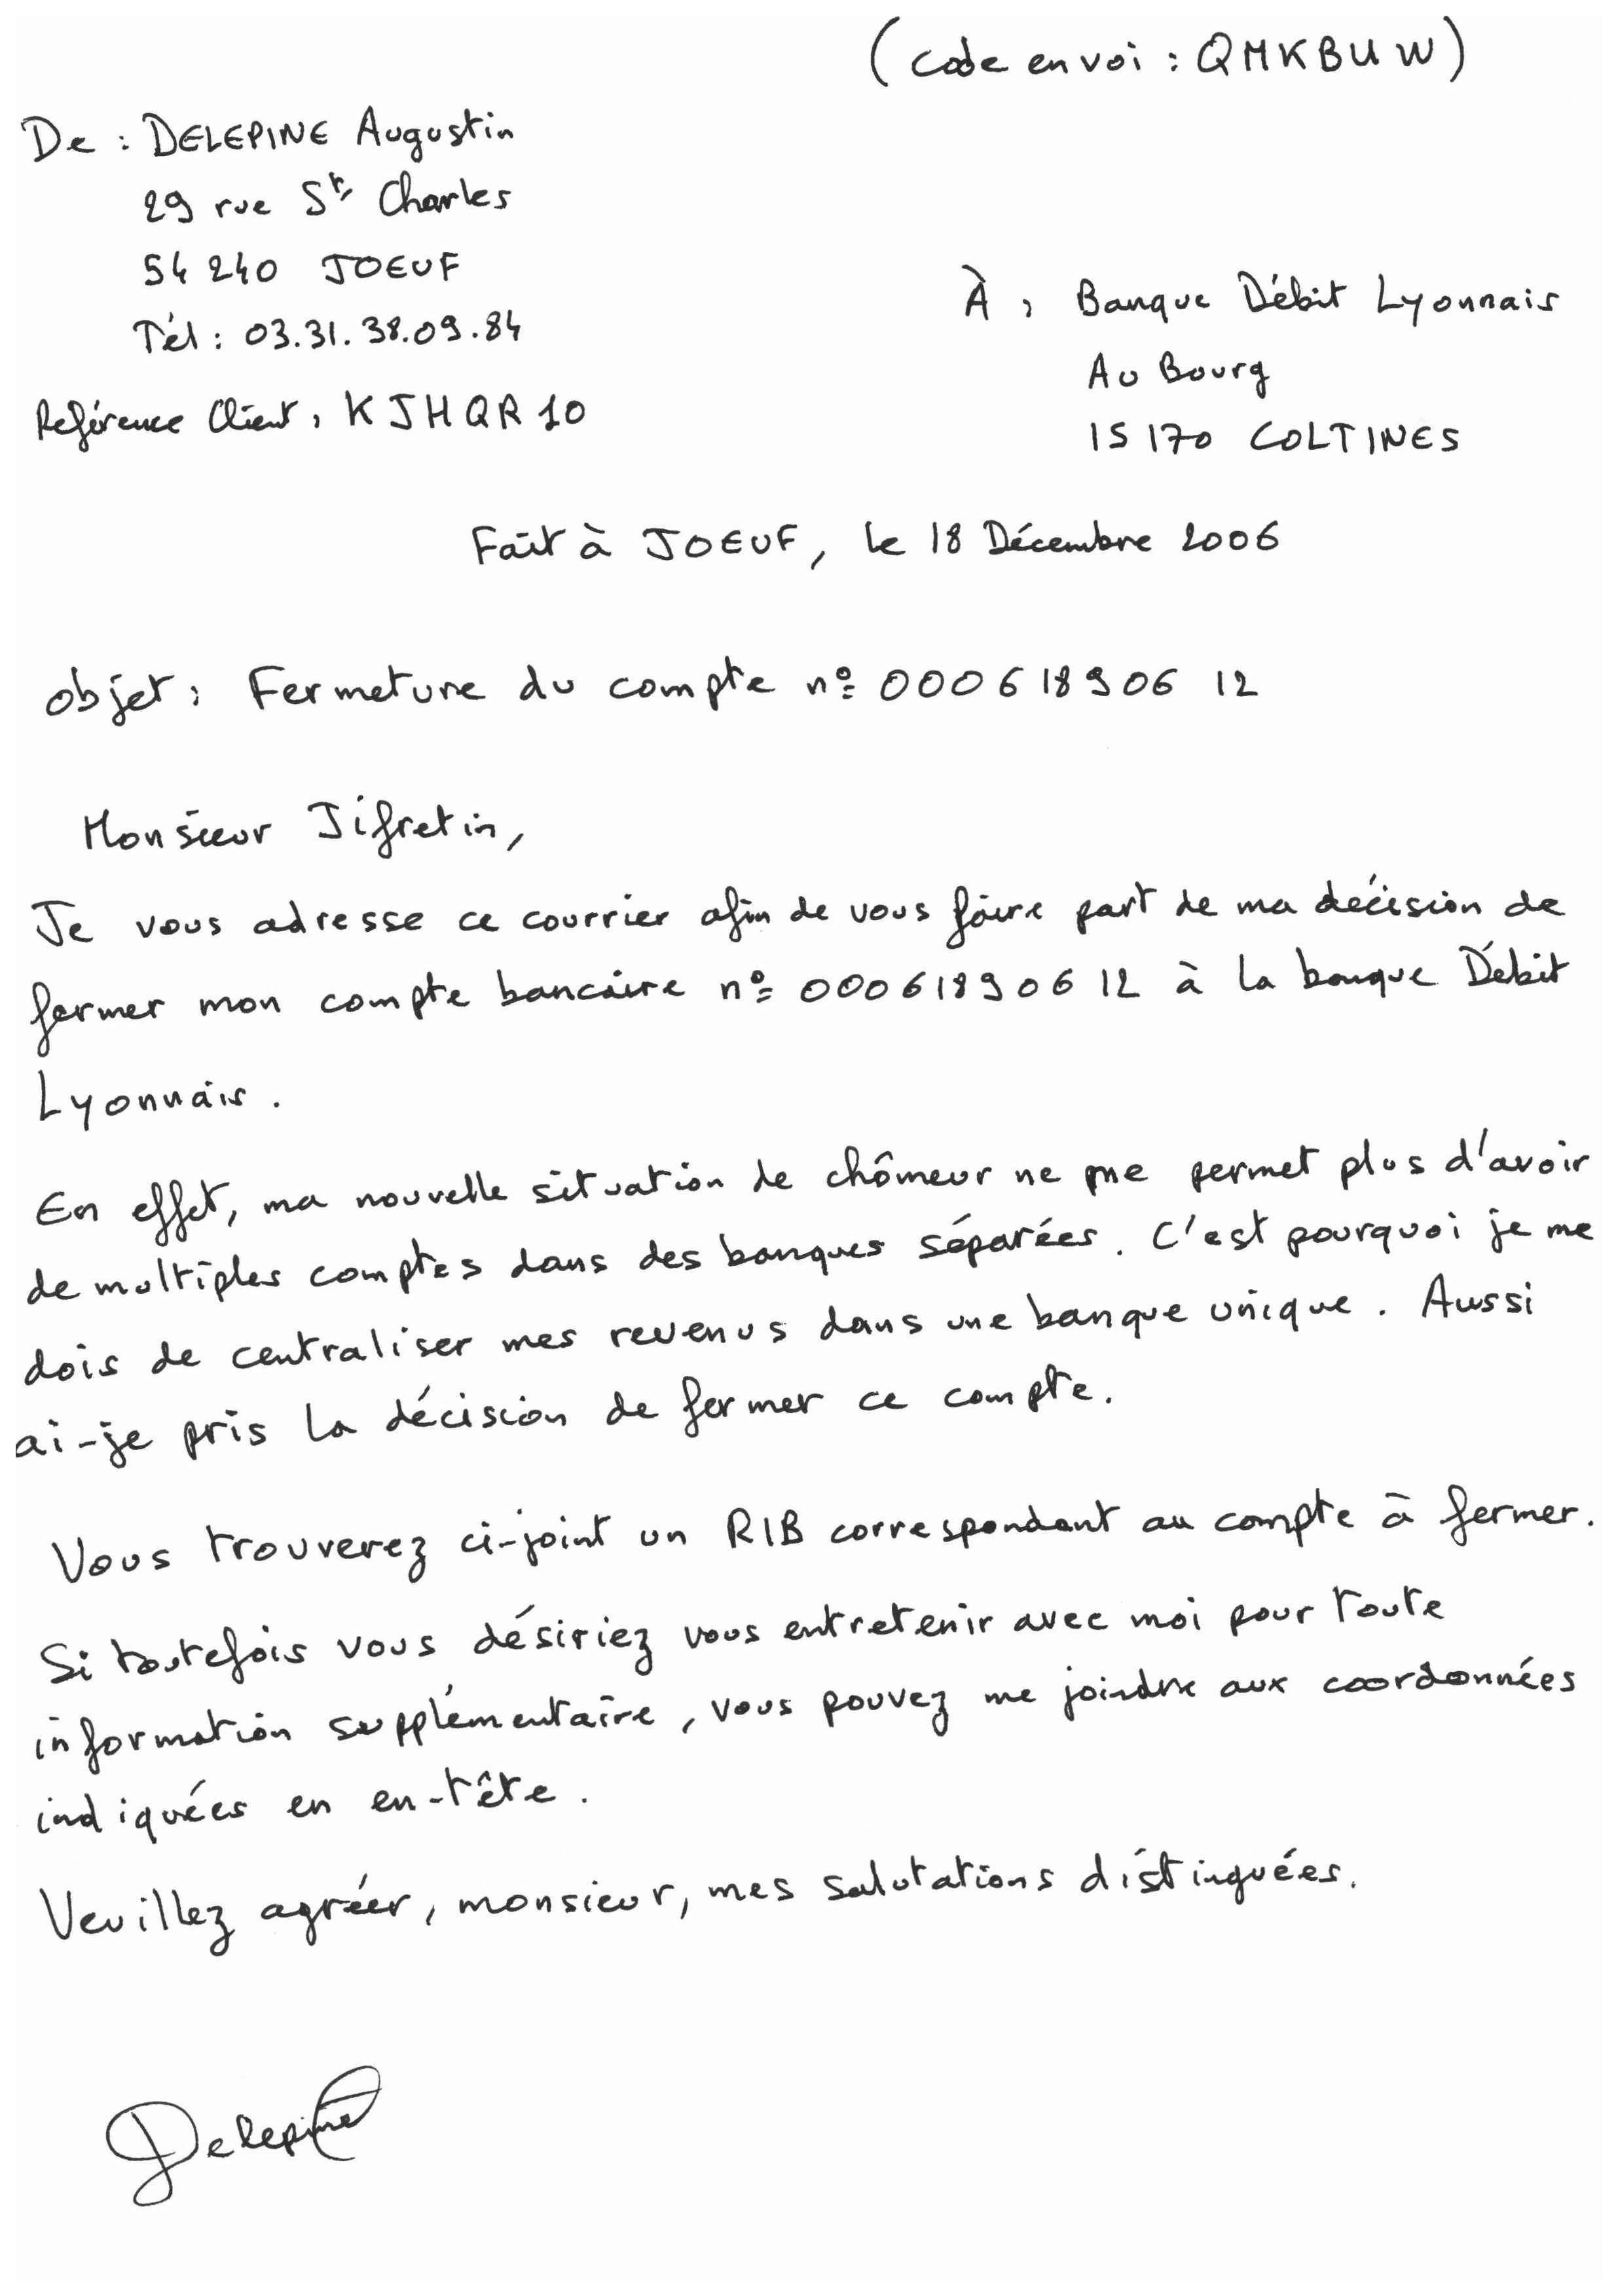 (code envoi : QMKBUW)
De : DELEPINE Augustin
29 rue St Charles
54 240 JOEUF
Tél : 03.31.38.09.84
Reférence Client : KJHQR10
À : Banque Débit Lyonnais
Au Bourg
15 170 COLTINES
Fait à JOEUF, le 18 Décembre 2006
objet : Fermeture du compte n° 000618906 12
Monsieur Jifretin,
Je vous adresse ce courrier afin de vous faire part de ma décision de
fermer mon compte bancaire n° 000618906 12 à la banque Débit
Lyonnais.
En effet, ma nouvelle situation de chômeur ne me permet plus d'avoir
de multiples comptes dans des banques séparées. C'est pourquoi je me
dois de centraliser mes revenus dans une banque unique. Aussi
ai-je pris la décision de fermer ce compte.
Vous trouverez ci-joint un RIB correspondant au compte à fermer.
Si toutefois vous désiriez vous entretenir avec moi pour toute
information supplémentaire, vous pouvez me joindre aux coordonnées
indiquées en en-tête.
Veuillez agréer, monsieur, mes salutations distinguées.
Delepine